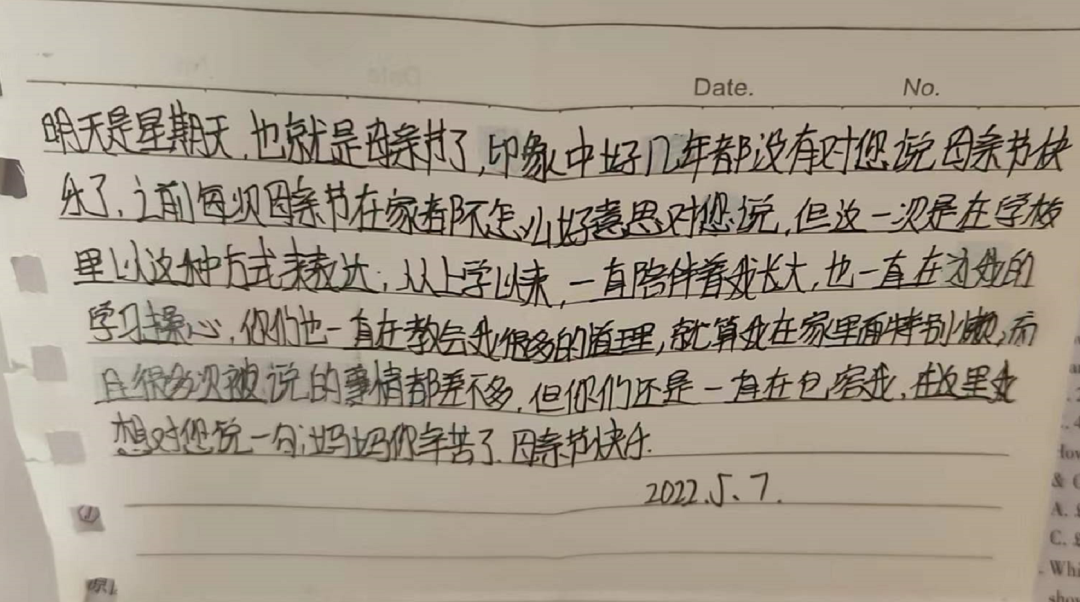 Date. No.
明天是星期天,也就是母亲节了,印象中好几年都没有对您说母亲节快
乐了,之前每次母亲节在家都不怎么好意思对您说,但这一次是在学校
里以这种方式来表达;从上学以来,一直陪伴着我长大,也一直在为我的
学习操心,你们也一直在教会我很多的道理,就算我在家里面特别懒,而
且很多次被说的事情都差不多,但你们还是一直在包容我,在这里我
想对您说一句:妈妈你辛苦了,母亲节快乐.
2022.5.7.
How
& C
A. £
C. £
Whi
show